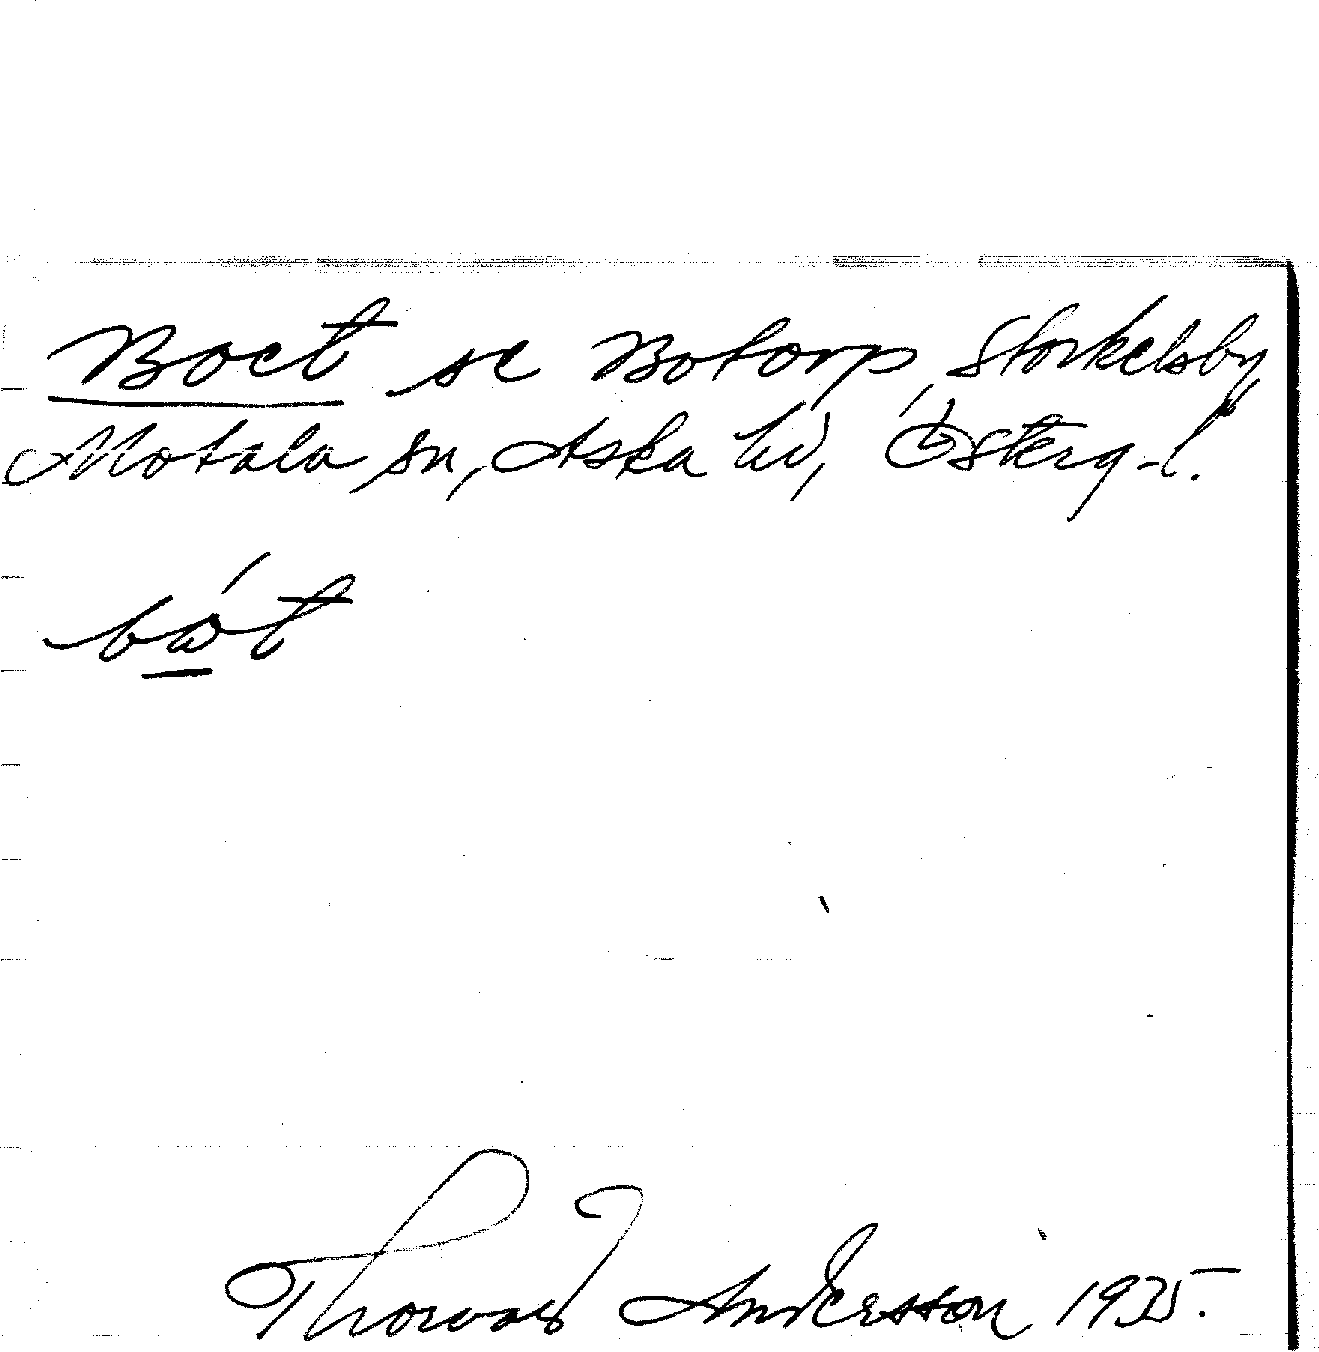 Boet se Botorp, Storkelsby
Motala sn, Aska hd, Österg-l.
bót
Thorvald Andersson 1935.